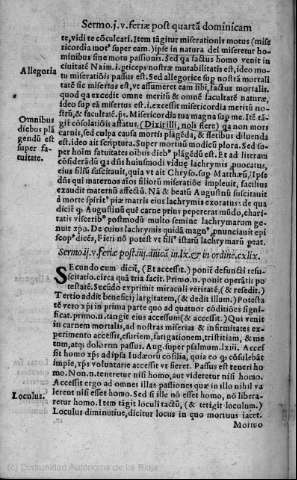 Sermo.j.v.feriæ post quartā dominicam
te, vidi te cōculcatī. Item tāgitur miserationis motus (mise
ricordia mot⁹ super eam.) ipse in natura dei miseretur ho-
minibus sine motu passionis. Sed qa factus homo venit in
ciuitatē Naim .i. pticeps nostræ mutabilitatis est, ideo mo-
Allegoria
tu miserationis passus est. Sed allegorice sup nostrā mortali
tatē sic misertus est, vt assumeret eam sibi, factus mortalis.
quod qa excedit omne meritū & omnē facultatē naturæ,
ideo sup eā misertus est .i. excessit misericordia meritū no-
strū, & facultatē
Misericordia tua magna sup me. Itē tā-
git cōsolationis affatus, (Dixit illi, noli flere) qa non mors
Omnibus
diebus plā
gendū est
super fa-
tuitate.
carnis, sed culpa causa mortis plāgēda, & fletibus diluenda
est. ideo ait scriptura. Super mortuū modicū plora. Sed su-
per hoīm fatuitates oībus dieb⁹ plāgēdū est. Et ad literam
cōsiderādū
dūs huiusmodi viduę lachrymis
eius filiū suscitauit, quia vt ait Chryso. sup Matthæū, Ipse
dūs qui maternos
filioru miseratiōe impleuit, facilius
exaudit maternū affectū. Nā & beatū Augustinū suscitauit
à morte spirit⁹ piæ matris eius lachrymis exoratus: de qua
dicit
Augustinus quē carne prius pepererat mūdo, chari-
tatis visceribus postmodū multo semine lachrymarum ge-
nuit xpō. De cuius lachrymis quidā magn⁹
epi
scop⁹ dicēs, Fieri nō potest vt fili⁹ istarū lachrymarū peat.
SEcundo cum dicit, (Et accessit.) ponit defuncti resu-
scitatio. circa quā tria facit. Primo .n. ponit operātis po
testatē. Secūdo exprimit miraculi veritatē, (& resedit.)
Tertio addit beneficij largitatem, (& dedit illum.) Potesta
tē vero xpi in prima parte quo ad quatuor cōditiones signi-
ficat. primo .n. tangit eius accessum (& accessit.) Qui venit
in carnem mortalis, ad nostras miserias & infirmitates ex-
perimento accessit, esuriem, fatigationem, tristitiam, & mor
tem, atq; dolorem passus. Aug. super psalmum .lxiii. Acces
sit homo xps adipsa Iudæorū cōsilia, quia eo
cōsulebāt
impie, xps voluntarie accessit vt fieret. Passus est teneri ho
mo. Non .n. teneretur nisi homo, aut videretur nisi homo.
Accessit ergo ad omnes illas passiones quæ in illo nihil va
lerent nisi esset homo. Sed si ille nō esset homo, nō libera-
Loculus.
retur homo. Item tāgit loculi tactū, (& tetigit loculum.)
Loculus diminutiue, dicitur locus in quo mortuus iacet.
Motuo
(c) Comunidad Autónoma de La Rioja